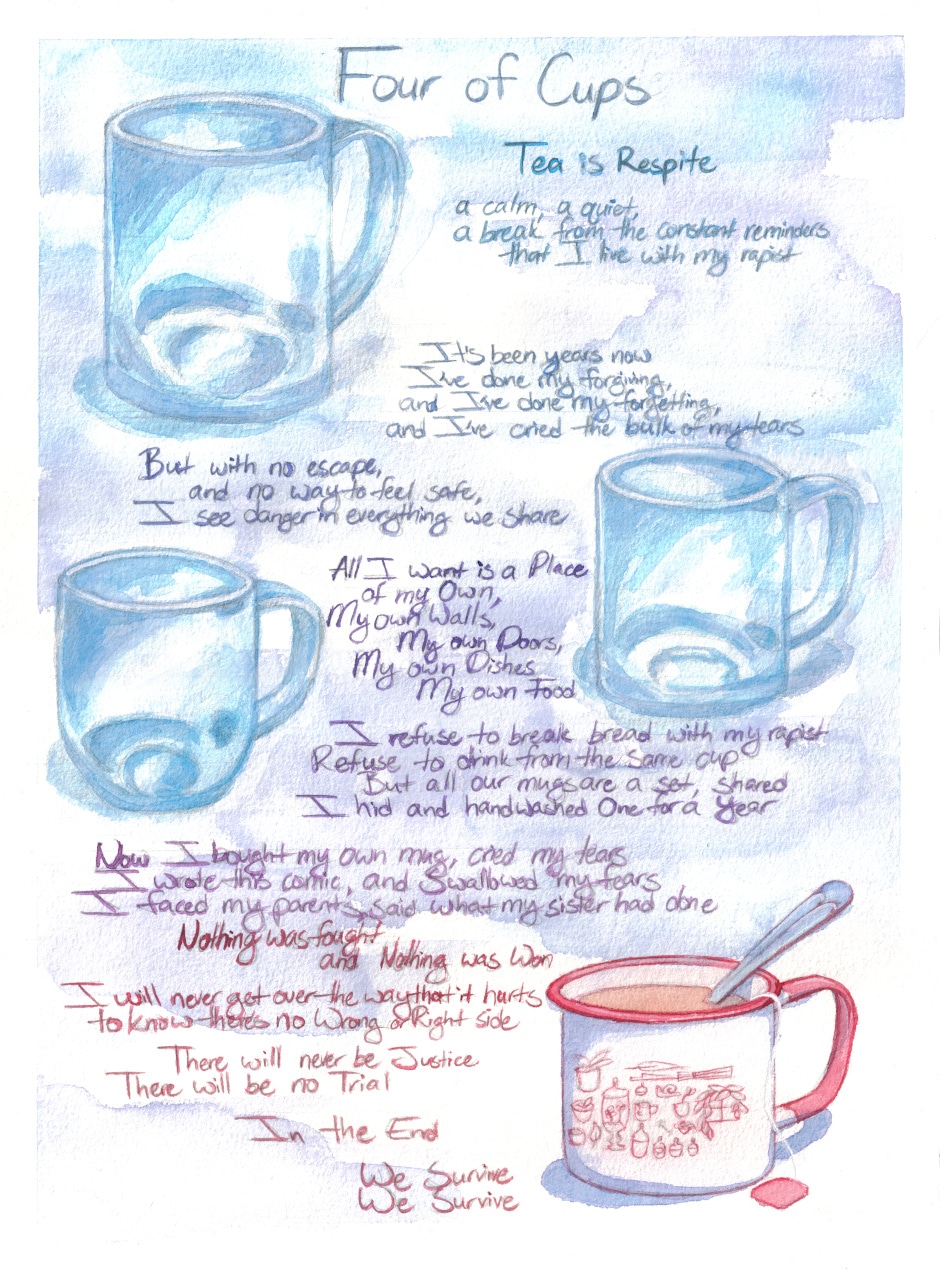 Four of Cups
Tea is Respite
a calm, a quiet,
a break from the constant reminders
that I live with my rapist
It's been years now
I've done my forgiving,
and I've done my forgetting,
and I've cried the bulk of my tears
But with no escape,
and no way to feel safe,
I see danger in everything we share
All I want is a Place
of my Own,
My own Walls,
My own Doors,
My own Dishes
My own Food
I refuse to break bread with my rapist
Refuse to drink from the same cup
But all our mugs are a set, shared
I hid and handwashed One for a Year
Now I bought my own mug, cried my tears
I wrote this comic, and Swallowed my fears
I faced my parents, said what my sister had done
Nothing was fought
and Nothing was Won
I will never get over the way that it hurts
to know there's no Wrong or Right side
There will never be Justice
There will be no Trial
In the End
We Survive
We Survive